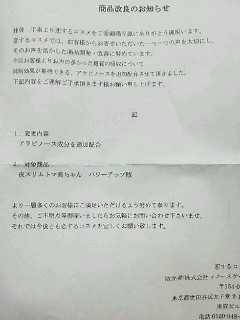 商品改良のお知らせ
拝啓 平素より恋するコスメをご愛顧賜り誠にありがとう御座います。
恋するコスメでは、お客様からお寄せいただいた一つ一つの声を大切にし、
そのお声を活かした商品開発・改善に努めています。
今回お客様よりお声の多かった糖質の吸収について
抑制効果が期待できる、アラビノースを追加配合させて頂きました。
下記内容をご理解ご了承頂きます様お願い申し上げます。
記
1. 変更内容
アラビノース成分を追加配合
2. 対象商品
夜スリムトマ美ちゃん パワーアップ版
より一層多くのお客様にご満足いただけるよう努めて参ります。
その他、ご不明な点等御座いましたらお気軽にお問い合わせ下さいませ。
それでは今後とも恋するコスメを宜しくお願い致します。
恋するコス
販売者:株式会社
〒151-0
東京都渋谷区千駄ヶ谷
電話 0120-948-